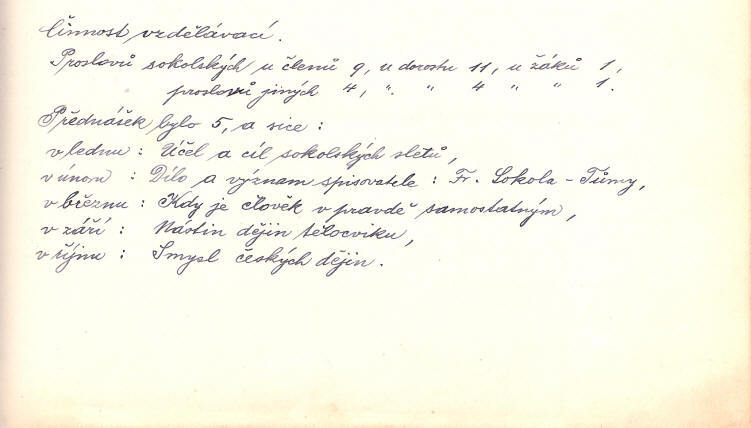 Činnost vzdělávací.
Proslovů sokolských u členů 9, u dorostu 11, u žáků 1,
proslovů jiných 4, „ „ 4 „ „ 1.
Přednášek bylo 5, a sice :
v lednu : Účel a cíl sokolských sletů,
v únoru : Dílo a význam spisovatele : Fr. Sokola - Tůmy,
v březnu : Kdy je člověk v pravdě samostatným,
v září : Nástin dějin tělocviku,
v říjnu : Smysl českých dějin.